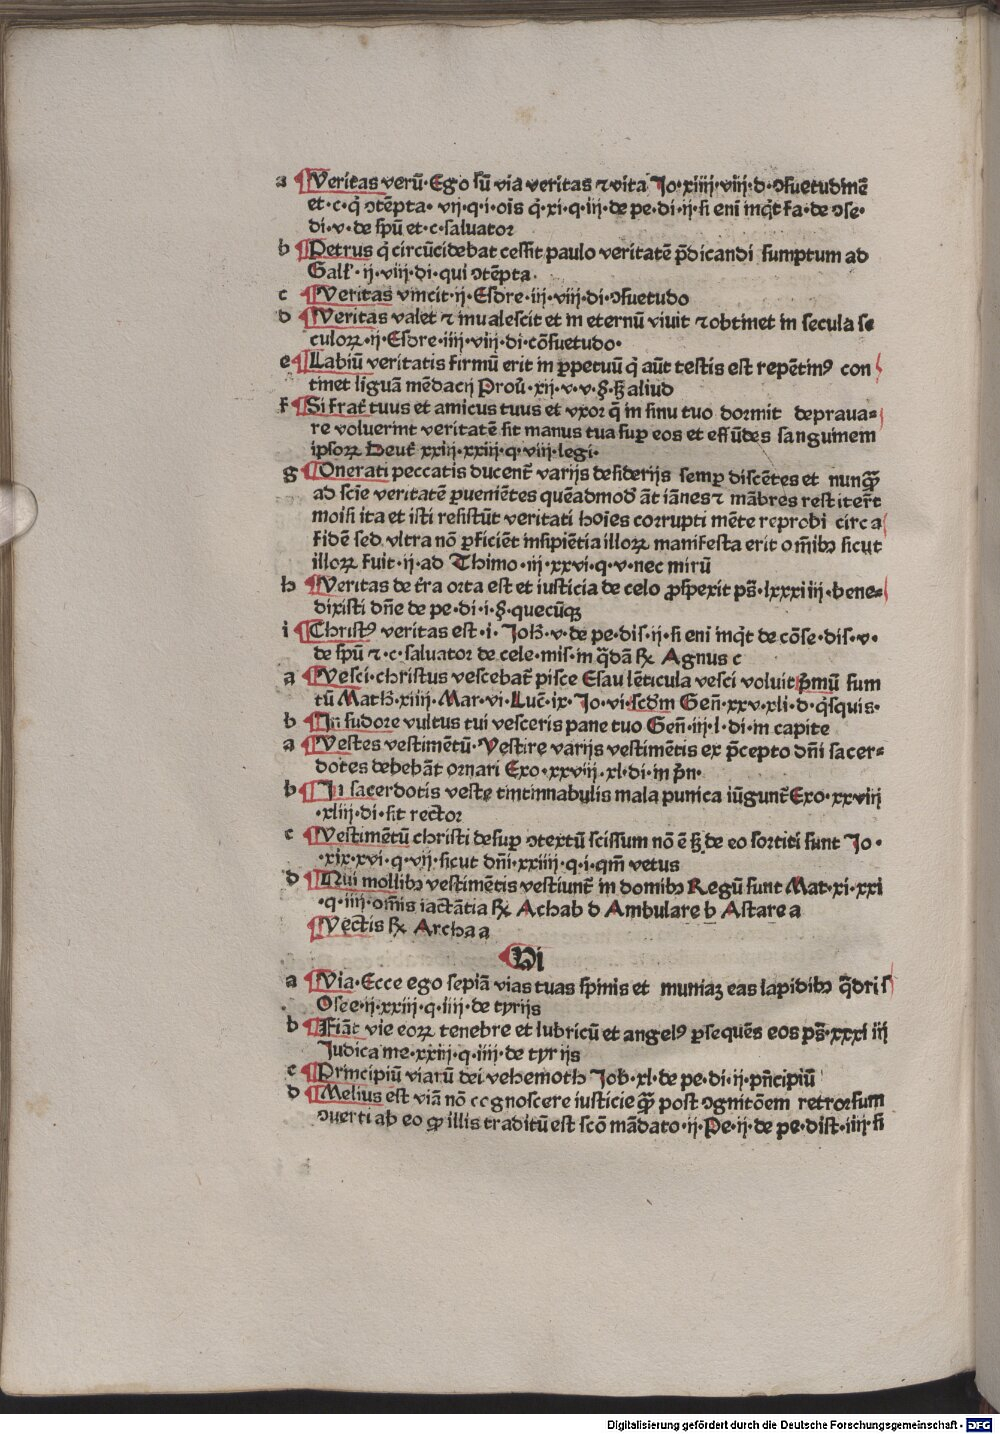 a ¶Veritas verū·Ego sū via veritas ⁊ vita Jo·xiiii·viii·d·ↄsuetudinē
et·c·q̇ ↄtēpta· vij·q·i·oīs q̇·xi·q·iii·de pe·di·ij·si eni inq̇t fa·de ↄse·
di·v·de spū et·c·saluator
b ¶Petrus q̇ circūcidebat cessit paulo veritatē p̄dicandi sumptum ad
Gall̄·ij·viij·di·qui ↄtēpta·
c ¶Veritas vincit·ij·Esdre·iij·viij·di·ↄsuetudo
d ¶Veritas valet ⁊ inualescit et in eternū viuit ⁊ obtinet in secula se
culoꝝ·ij·Esdre·iiij·viij·di·cōsuetudo·
e ¶Labiū veritatis firmū erit in ꝑpetuū q̇ aūt testis est repētinꝰ con
tinet liguā mēdacij Prou̇·xij·v·v·§·ꝫ aliud
f ¶Si frat̄ tuus et amicus tuus et vxor q̄ in sinu tuo dormit depraua⸗
re voluerint veritatē sit manus tua suꝑ eos et effūdes sanguinem
ipsoꝝ Deut̄ xxiij·xxiij·q·viij·legi·
g ¶Onerati peccatis ducent̄ varijs desiderijs semꝑ discētes et nunq̄ꝫ
ad scīe veritatē ꝑueniētes quēadmod̄ āt iānes ⁊ mābres restiter̄t
moisi ita et isti resistūt veritati hoīes corrupti mēte reprobi circa
fidē sed vltra nō ꝓficiēt insipiētia illoꝝ manifesta erit om̄ibꝫ sicut
illoꝝ fuit·ij·ad Thimo·iij·xxvi·q·v·nec mirū
h ¶Veritas de t̄ra orta est et iusticia de celo ꝓspexit ps̄·lxxxiiij·bene⸗
dixisti dn̄e de pe·di·i·§·quecūqꝫ
i ¶Christꝰ veritas est·i·Joh̄·v·de pe·dis·ij·si eni inq̇t de cōse·dis·v·
de spū ⁊·c·saluator de cele·mis·in q̄dā ℞ Agnus c
a ¶Vesci·christus vescebat̄ pisce Esau lēticula vesci voluit p̄mū sum
tū Math̄·xiiij·Mar·vi·Luc̄·ix·Jo·vi·scd̄m Gen̄·xxv·xli·d·q̇squis·
b ¶In sudore vultus tui vesceris pane tuo Gen̄·iij·l·di·in capite
a ¶Vestes vestimētū·Vestire varijs vestimētis ex p̄cepto dn̄i sacer⸗
dotes debebāt ornari Exo·xxviij·xl·di·in p̄n·
b ¶In sacerdotis veste tintinnabulis mala punica iūgunt̄ Exo·xxviij
·xliij·di·sit rector
c ¶Vestimētū christi desuꝑ ↄtextū scissum nō ē ꝫ de eo sortiti sunt Jo·
·xix·xvi·q·vij·sicut dn̄i·xxiiij·q·i·qm̄ vetus
d ¶Qui mollibꝫ vestimētis vestiunt̄ in domibꝫ Regū sunt Mat·xi·xxi
·q·iiij·om̄is iactātia ℞ Achab d Ambulare b Astare a
¶Vectis ℞ Archa a
¶Vi
a ¶Via·Ecce ego sepiā vias tuas spinis et muniaꝫ eas lapidibꝫ q̄dris
Osee·ij·xxiij·q·iiij·de tyrijs
b ¶Fiāt vie eoꝝ tenebre et lubricū et angelꝰ ꝑsequēs eos ps̄·xxxiiij
Judica me·xxiij·q·iiij·de tyrijs
c ¶Principiū viarū dei vehemoth Job·xl·de pe·di·ij·pn̄cipiū
d ¶Melius est viā nō cognoscere iusticie q̄ꝫ post ↄgnitōem retrorsum
ↄuerti ab eo qꝫ illis traditū est scō mādato·ij·Pe·ij·de pe·dist·iiij·si
Digitalisierung gefördert durch die Deutsche Forschungsgemeinschaft · DFG